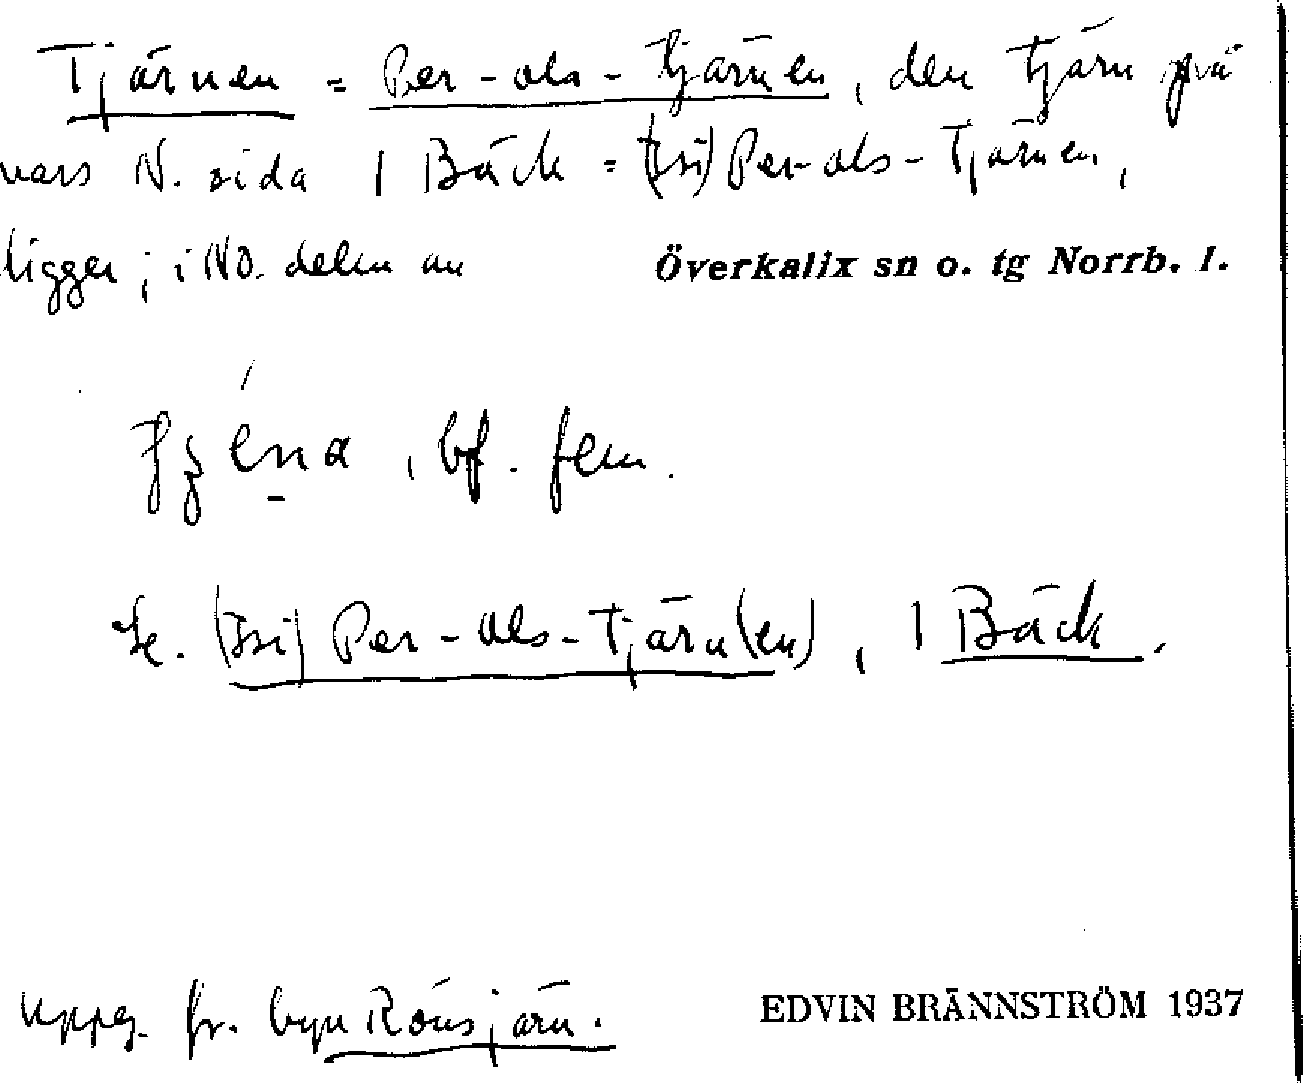 Tjärnen = Per-ols-tjärnen, den tjärn på
vars N. sida 1 Bäck = (Bsi) Per-ols-Tjärnen,
ligger; i NO. delen av Överkalix sn o. tg Norrb. l.
bf. fem.
Se. (Bsi) Per-Ols-Tjärn(en), 1 Bäck.
Uppg. fr. byn Rönsjärn. EDVIN BRÄNNSTRÖM 1937